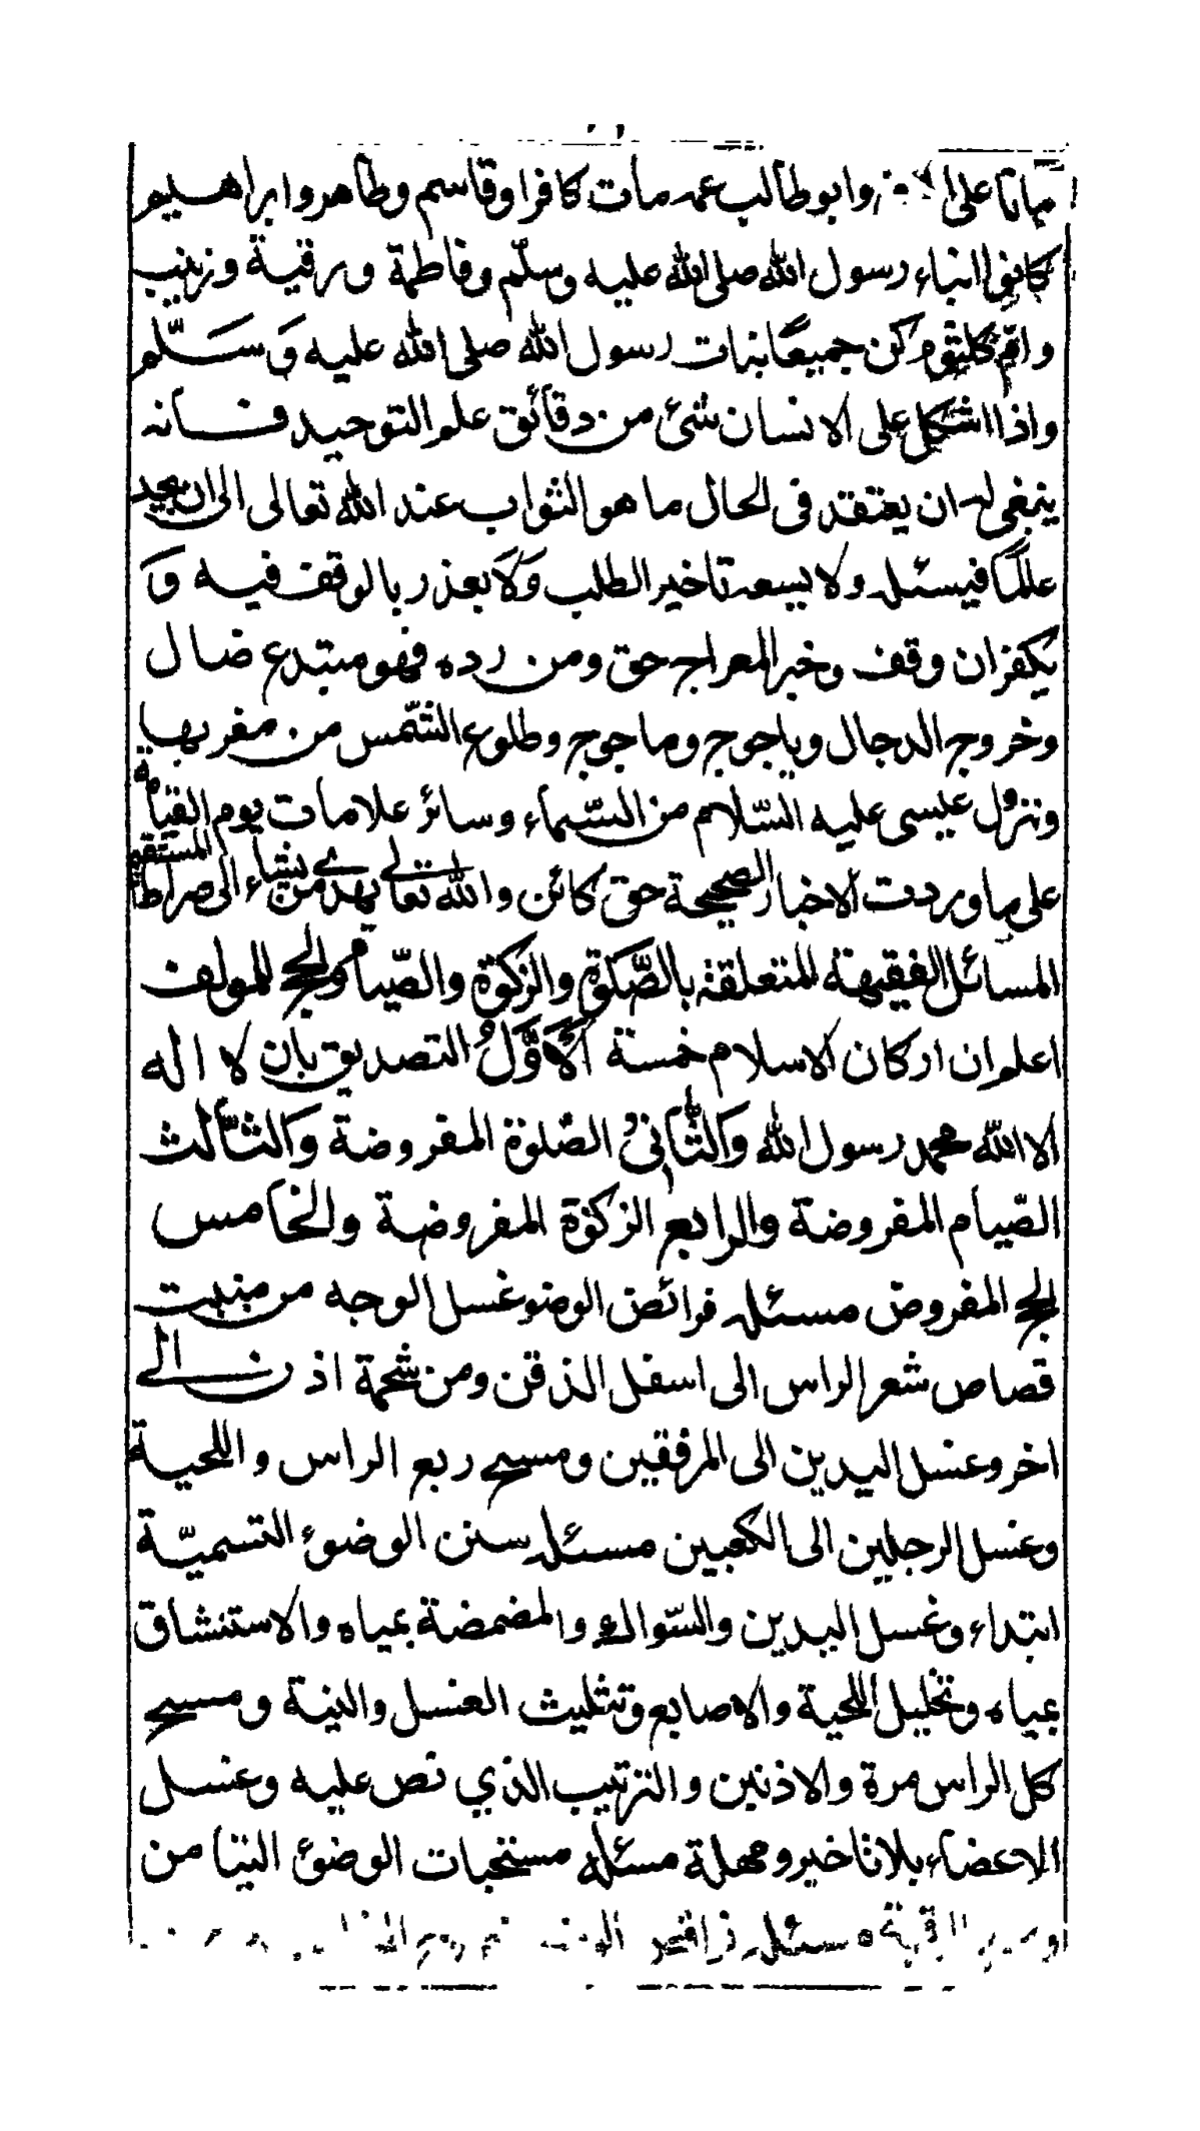 ماتا على الكفر وابو طالب عمه مات كافرا وقاسم وطاهر وابراهيم
كانوا ابناء رسول الله صلى الله عليه وسلّم وفاطمة ورقية وزينب
وامّ كلثوم كن جميعًا بنات رسول الله صلى الله عليه وَسَلّم
واذا اشكل على الانسان شئ من دقائق علم التوحيد فانه
ينبغى له ان يعتقد فى الحال ما هو الثواب عند الله تعالى الى ان يجد
عالمًا فيسئله ولا يسعه تاخير الطلب وَلَا يعذر بالوقف فيه وَ
يكفر ان وقف وخبر المعراج حق ومن رده فهو مبتدع ضال
وخروج الدجال وياجوج وماجوج وطلوع الشّمس من مغربها
ونزول عيسى عليه السّلام من السّماء وسائر علامات يوم القيامة
على ما وردت الاخبار الصحيحة حق كائن والله تعالى يهدے من يشاء الى صراط المستقيم
المسائل الفقيهة المتعلقة بالصَّلٰوة والزكوة والصّيام والحج للمولف
اعلم ان اركان الاسلام خمسة اَلْاَوَّلُ التصديق بان لا اله
الا الله محمد رسول الله وَالثَّانىُ الصّلوة المفروضة وَالثّالث
الصّيام المفروضة والرابع الزكوة المفروضة والخامس
الحج المفروض مسئله فرائض الوضو غسل الوجه من منبت
قصاص شعر الراس الى اسفل الذقن ومن شحمة اذن الے
اخر وغسل اليدين الى المرفقين ومسح ربع الراس واللحية
وغسل الرجلين الى الكعبين مسئله سنن الوضوئ التسميّة
ابتداء وغسل اليدين والسّواك والمضمضة بمياه والاستنشاق
بمياه وتخليل اللحية والاصابع وتثليث الغسل والنية ومسح
كل الراس مرة والاذنين والترتيب الذي نص عليه وغسل
الاعضاء بلا تاخير ومهلة مسئله مستحبات الوضوئ التيامن
ومسح الرقبة مسئله